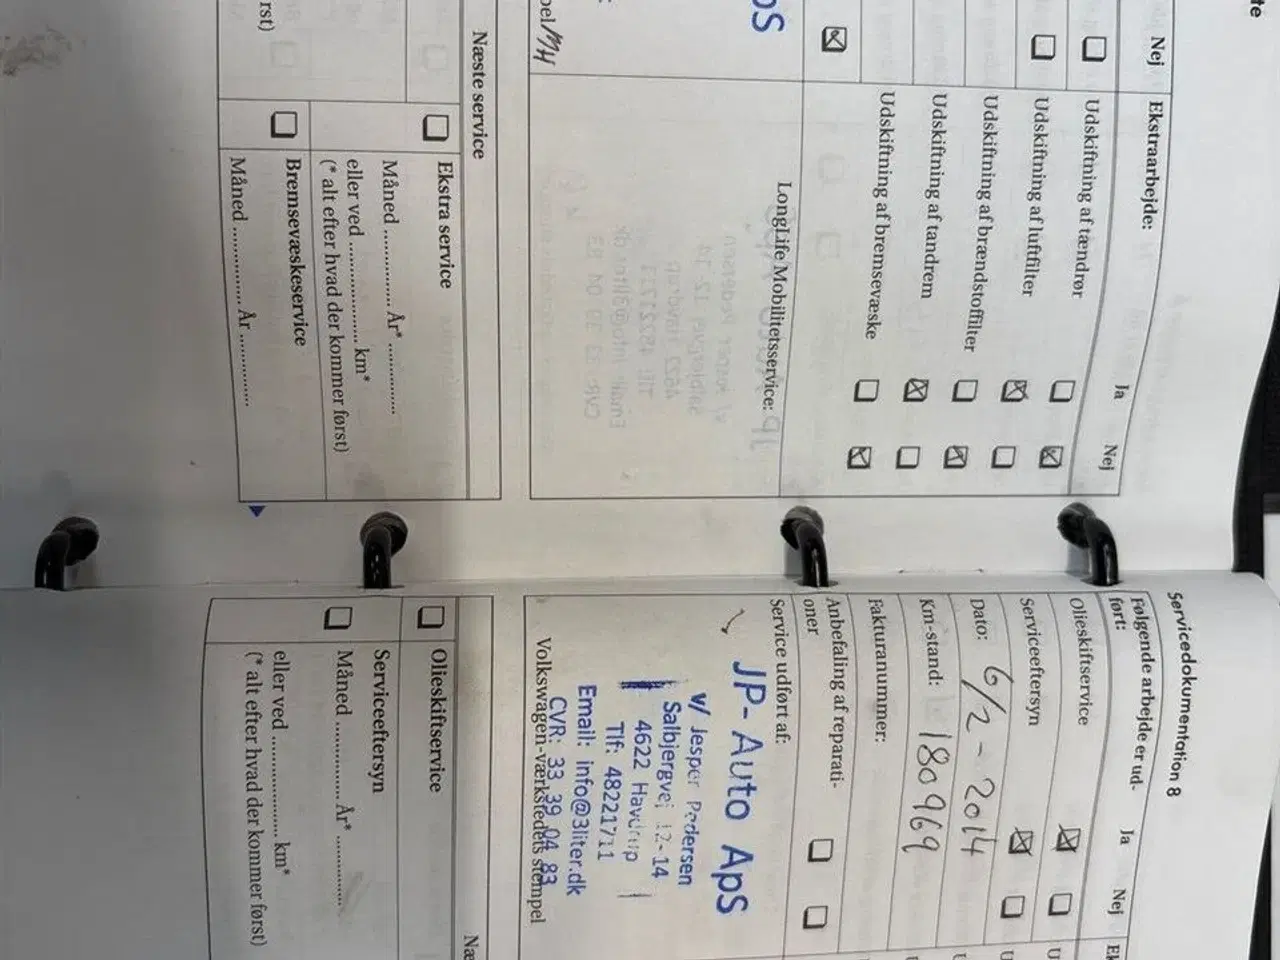 te
Nej
Ekstraarbejde:
Ja
Nej
Udskiftning af tændrør
Udskiftning af luftfilter
Udskiftning af brændstoffilter
Udskiftning af tandrem
Udskiftning af bremsevæske
LongLife Mobilitetsservice:
pS
pel
Næste service
Ekstra service
Måned ............ År* ..............
eller ved ...................... km*
(* alt efter hvad der kommer først)
rst)
Bremsevæskeservice
Måned ............ År ..............
Servicedokumentation 8
Følgende arbejde er ud-
ført:
Ja
Nej
Ek
Olieskiftservice
Serviceeftersyn
Dato: 6/2 - 2014
Km-stand: 180969
Fakturanummer:
Anbefaling af reparati-
oner
Service udført af:
JP-Auto ApS
v/ Jesper Pedersen
Salbjergvej 12-14
4622 Havdrup
Tlf: 48221711
Email: info@3liter.dk
CVR: 33 39 04 83
Volkswagen-værkstedets stempel
Næ
Olieskiftservice
Serviceeftersyn
Måned ............ År* ..............
eller ved ...................... km*
(* alt efter hvad der kommer først)